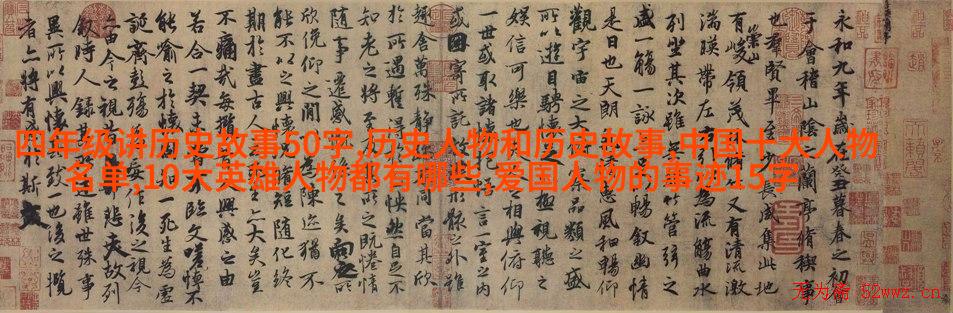 四年级讲历史故事50字,历史人物和历史故事,中国十大人物
名单,10大英雄人物都有哪些,爱国人物的事迹15字
永和九年歲在癸丑暮春之初會
于會稽山陰之蘭亭脩稧事
也群賢畢至少長咸集此地
有崇山峻領茂林脩竹又有清流激
湍暎帶左右引以為流觴曲水
列坐其次雖無絲竹管弦之
盛一觴一詠亦足以暢敘幽情
是日也天朗氣清惠風和暢仰
觀宇宙之大俯察品類之盛
所以遊目騁懷足以極視聽之
娛信可樂也夫人之相與俯仰
一世或取諸懷抱悟言一室之內
或因寄所託放浪形骸之外雖
趣舍萬殊靜躁不同當其欣
於所遇蹔得於己怏然自足不
知老之將至及其所之既惓情
隨事遷感慨係之矣向之所
欣俛仰之閒以為陳迹猶不
能不以之興懷況脩短隨化終
期於盡古人云死生亦大矣豈
不痛哉每攬昔人興感之由
若合一契未嘗不臨文嗟悼不
能喻之於懷固知一死生為虛
誕齊彭殤為妄作後之視今
亦由今之視昔悲夫故列
敘時人錄其所述雖世殊事
異所以興懷其致一也後之攬
者亦將有感於斯文
52wwz.cn